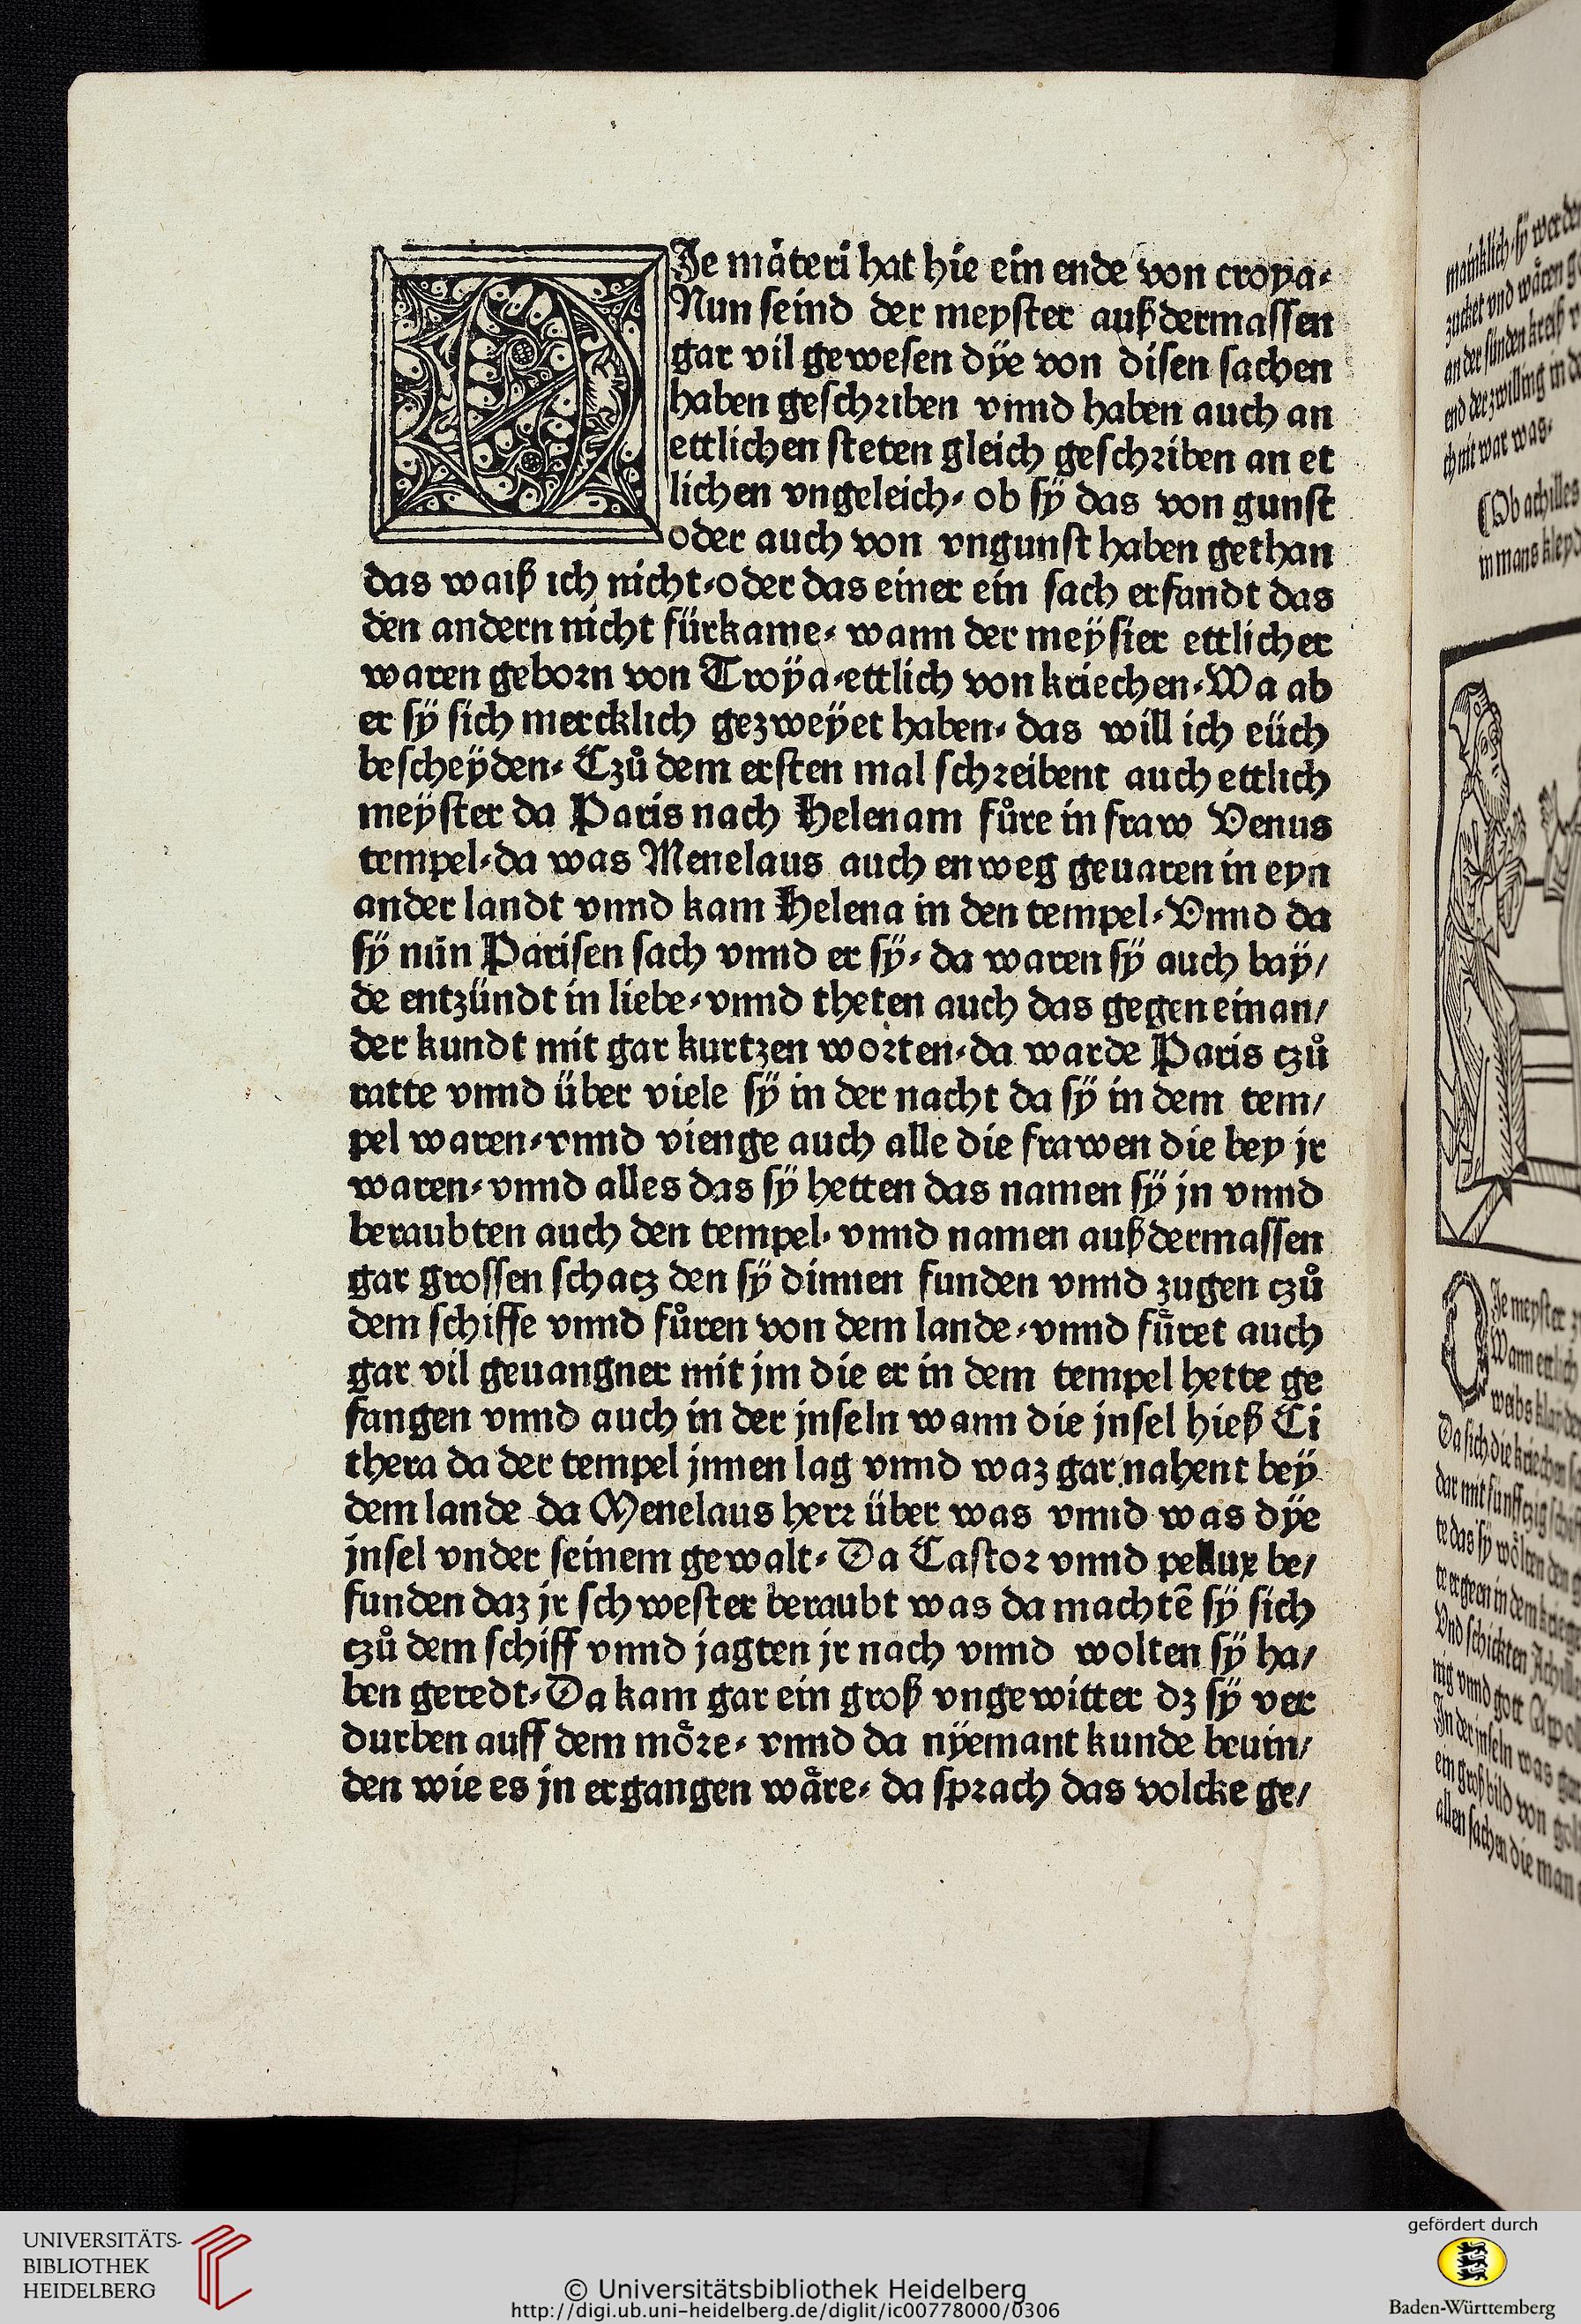 DJe materi hat hie ein ende von troya⸗
Nun seind der meyster außdermassen
gar vil gewesen dÿe von disen sachen
haben geschriben vnnd haben auch an
ettlichen steten gleich geschriben an et
lichen vngeleich⸗ ob sÿ das von gunst
oder auch von vngunst haben gethan
das waiß ich nicht⸗oder das einer ein sach erfandt das
den andern nicht fürkame⸗ wann der meÿster ettlicher
waren geborn von Troÿa⸗ettlich von kriechen⸗Wa ab
er sÿ sich mercklich gezweÿet haben⸗ das will ich eüch
bescheÿden⸗ Czů dem ersten mal schreibent auch ettlich
meÿster da Paris nach Helenam fůre in fraw Venus
tempel⸗da was Menelaus auch enweg geuaren in eyn
ander landt vnnd kam Helena in den tempel⸗Vnnd da
sÿ nün Parisen sach vnnd er sÿ⸗ da waren sÿ auch baÿ/
de entzündt in liebe⸗vnnd theten auch das gegen einan/
der kundt mit gar kurtzen worten⸗da warde Paris czů
ratte vnnd über viele sÿ in der nacht da sÿ in dem tem/
pel waren⸗vnnd vienge auch alle die frawen die bey jr
waren⸗ vnnd alles das sÿ hetten das namen sÿ jn vnnd
beraubten auch den tempel⸗ vnnd namen außdermassen
gar grossen schacz den sÿ dinnen funden vnnd zugen czů
dem schiffe vnnd fůren von dem lande⸗vnnd fůret auch
gar vil geuangner mit jm die er in dem tempel hette ge
fangen vnnd auch in der jnseln wann die jnsel hieß Ci
thera da der tempel jnnen lag vnnd waz gar nahent beÿ
dem lande da Menelaus herr über was vnnd was dÿe
jnsel vnder seinem gewalt⸗ Da Castor vnnd pellux be/
funden daz jr schwester beraubt was da machtē sÿ sich
czů dem schiff vnnd jagten jr nach vnnd wolten sÿ ha/
ben geredt⸗Da kam gar ein groß vngewitter dz sÿ ver
durben auff dem möre⸗ vnnd da nÿemant kunde beuin/
den wie es jn ergangen wäre⸗ da sprach das volcke ge/
mainklich⸗sÿ werden
zucket vnd wären
an der sünden kreiß
end der zwilling in
ch nit war was⸗
Ob achilles
in mans kleyd
DJe meyster
Wann ettlich
weibs
Da sich die kriechen
dar mit fünffczig schif
te das sÿ wölten den
te ergeen in dem kriege
Vnd schickten Achille
nig vnnd gott Apoll
Jn der jnseln was gar
ein groß bild von gold
allen sachen die man
UNIVERSITÄTS-
BIBLIOTHEK
HEIDELBERG
© Universitätsbibliothek Heidelberg
http://digi.ub.uni-heidelberg.de/diglit/ic00778000/0306
gefördert durch
Baden-Württemberg